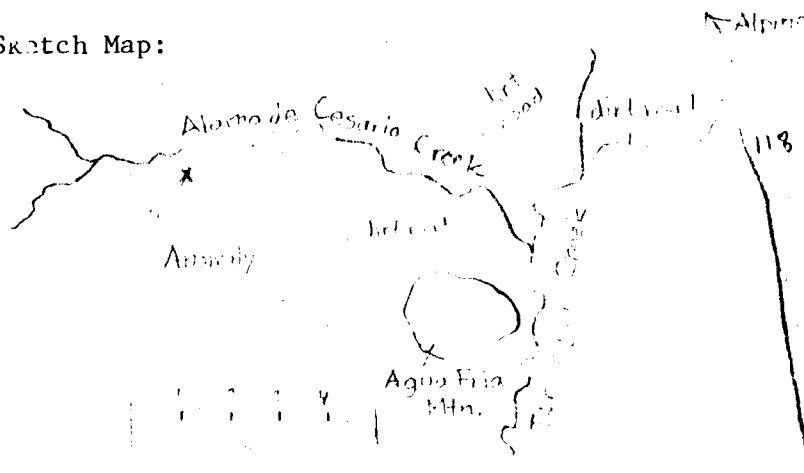 Sketch Map:
Alpine
Alamo de Cesario Creek
dirt road
dirt road
118
dirt road
Anomaly
Agua Fria
Mtn.
1 2 3 4